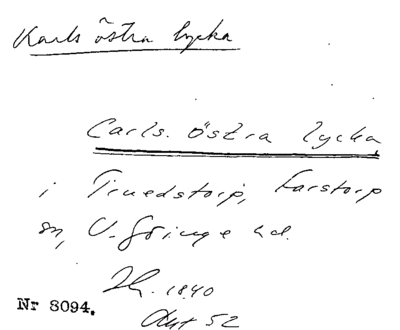 Karls östra lycka
Carls. östra lycka
i Truedstorp, Farstorp
sn, V. Göinge hd.
1840
Nr 8094.
Akt 52